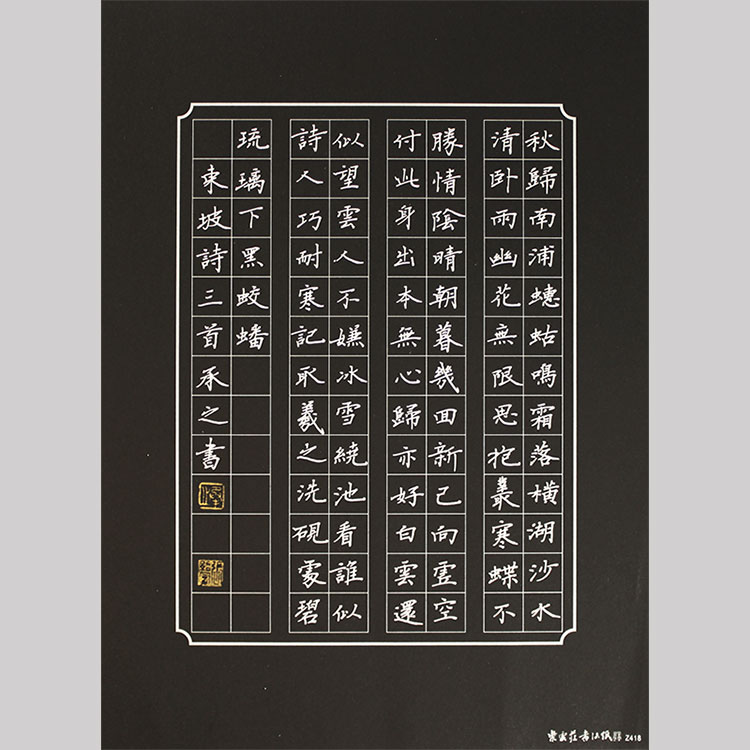 秋歸南浦蟪蛄鳴霜落橫湖沙水
清卧雨幽花無限思抱叢寒蝶不
勝情陰晴朝暮幾囬新已向虛空
付此身出本無心歸亦好白雲還
似望雲人不嫌冰雪繞池看誰似
詩人巧耐寒記取羲之洗硯處碧
琉璃下黑蛟蟠
東坡詩三首承之書
Z418